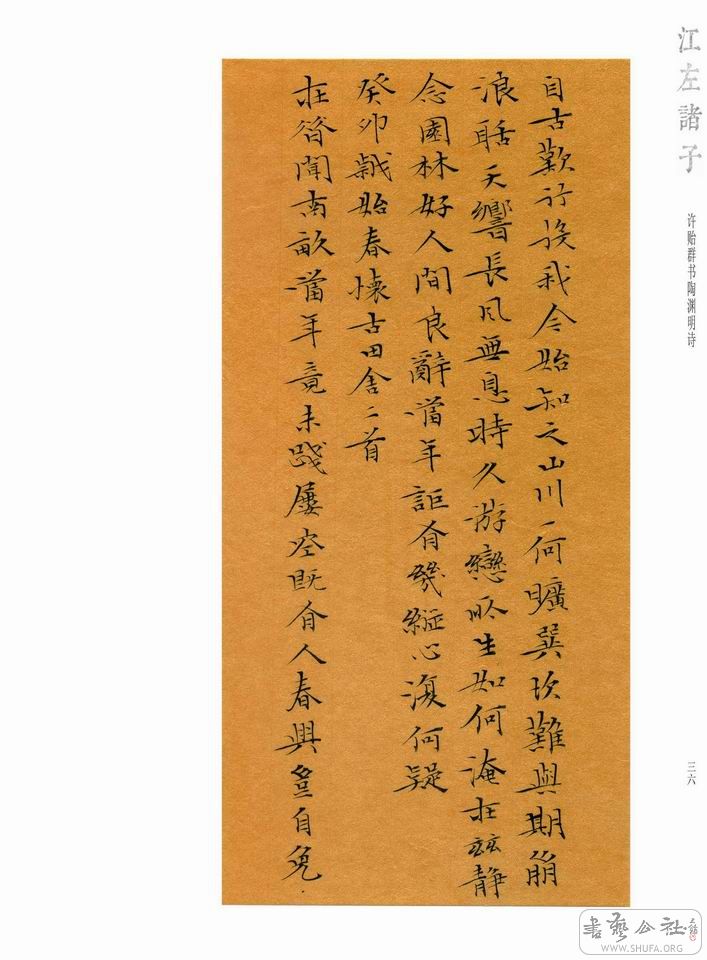 江左諸子
许贻群书陶渊明诗
三六
自古歎行役我今始知之山川一何曠巽坎難與期崩
浪聒天響長風無息時久游戀所生如何淹在玆静
念園林好人間良辭當年詎有幾縱心復何疑
癸卯歲始春懷古田舍二首
在昔聞南畝當年竟未踐屢空既有人春興豈自免
書藝公社
WWW.SHUFA.ORG